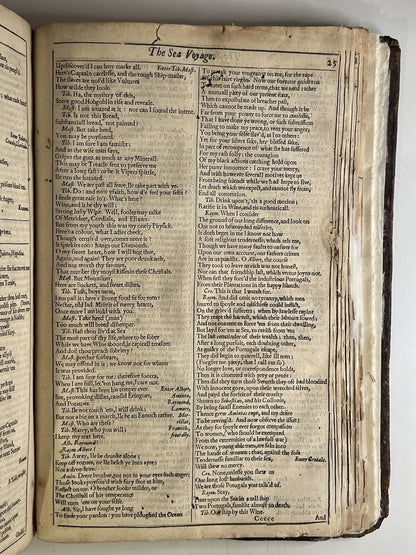 The Sea Voyage.
25
Undiscover'd I can here make all. Enter Tib. Mast.
Here's Captain carelesse, and the tough Ship-master,
The slaves are nos'd like Vultures
How wilde they looke.
Tib. Ha, the mystery of this,
Some good Hobgoblin rise and reveale.
Mast. I am amazed at it: nor can I sound the intent.
Tib. Is not this Bread,
Substantiall bread, not painted?
Mast. But take heed,
You may be poysoned.
Tib. I am sure I am famisht:
And famine as the wise man sayes,
Gripes the guts as much as any Minerall.
This may be Treacle sent to preserve me
After a long fast: or be it Vipers spittle,
Ile run the hazzard.
Mast. We are past all feare, Ile take part with ye.
Tib. Do: and now Y'faith, how d'ye feel your selfe?
I finde great ease in't. What's here?
Wine, and it be thy will
Strong lusty Wine: Well, fooles may talke
Of Mitridate, Cordialls, and Elixars
But from my youth this was my onely Physick.
Here's a colour, what Ladies cheek,
Though cerussd over, comes neer it?
It sparkles too: hangs out Diamonds.
O my sweet heart, how I will hug thee,
Again, and agaie: They are poor drunkards,
And not worth thy favours,
That number thy moyst kisses in these Christalls.
Mast. But Monsieur,
Here are Suckets, and sweet dishes.
Tib. Tush, boyes meat,
I am past it; here's strong food fit for men:
Nectar, old lad. Mistris of merry hearts,
Once more I am bold with you.
Mast. Take heed (man)
Too much will breed distemper.
Tib. Hast thou liv'd at Sea
The most part of thy life, where to be sober
While we have Wine aboord, is capitall treason:
And dost thou preach sobriety?
Mast. Prether forbeare,
We may offend in it; we know not for whom
It was provided.
Tib. I am sure for me: therefore footra,
When I am full, let 'em hang me, I care not.
Mast. This has been his temper ever. Enter Albert,
See, provoking dishes; candid Eringoes, Aminta,
And Potatoes. Raymond,
Tib. Ile not touch 'em, I will drink; Lamure,
But not a bit on a march, Ile be an Eunuch rather. Morillat,
Mast. Who are these? severally.
Tib. Marry, who you will;
I keep my text here.
Alb. Raymond!
Raym. Albert!
Tib. Away, Ile be drunke alone;
Keep off rogues, or Ile belch ye into ayre;
Not a drop here.
Amin. Dear brother, put not in your eyes such anger
Those looks poyson'd with fury shot at him,
Reflect on me. O brother looke milder, or
The Christall of his temperance
Will turn 'em on your selfe.
Alb. Sir, I have sought ye long
To finde your pardon: you have ploughed the Ocean
To wreak your vengeance on me, for the rape
Of this fair virgin. Now our fortune guides us
To meet on such hard termes, that we need rather
A mutuall pitty of our present state,
Then to expostulate of breaches past,
Which cannot be made up. And though it be
Far from your power to force me to confesse,
That I have done ye wrong, or such submission
Failing to make my peace, to vent your anger;
You being your selfe slav'd, as I to others:
Yet for your sisters sake, her blessed sake,
In part of recompence of what she has suffered
For my rash folly: the contagion
Of my black actions catching hold upon
Her purer innocence: I crave your mercy,
And wish how ever severall motives kept us
From being friends while we had hope to live,
Let death which we expect, and cannot fly from,
End all contention.
Tib. Drink upon't, 'tis a good motion;
Ratifie it in Wine, and tis authenticall.
Raym. When I consider
The ground of our long difference, and look on
Our not to be avoyded miseries,
It doth beget in me I know not how
A soft religious tendernesse; which tels me,
Though we have many faults to answer for
Upon our own account, our fathers crimes
Are in us punish'd. O Albert, the course
They took to leave us rich was not honest,
Nor can that friendship last, which vertue joyns not.
When first they forc'd the industrious Portugals,
From their Plantations in the happy Islands.
Cro. This is that I watch for.
Raym. And did omit no tyranny, which men
Inured to spoyle and mischiefe could inflict,
On the griev'd sufferers; when by lawlesse rapine
They reapt the harvest, which their labours sow'd;
And not content to force 'em from their dwelling,
But laid for 'em at Sea to ruine all,
The last remainder of their wealth: then, then,
After a long pursuit, each doubting other,
As guilty of the Portugals escape,
They did begin to quarrell, like ill men;
(Forgive me, piety, that I call 'em so)
No longer love, or correspondence holds,
Then it is cimented with prey or profit:
Then did they turne those Swords they oft had bloodied
With innocent gore, upon their wretched selves,
And payd the forfeit of their cruelty
Shown to Sebastian, and his Collonie,
By being fatall Enemies to each other.
Thence grew Aminta rape, and my desire
To be reveng'd. And now observe the issue:
As they for spoyle ever forgot compassion
To women, who should be exempted
From the extremities of a lawfull war;
We now, young able men, are falne into
The hands of women; that, against the soft
Tendernesse familiar to their sex, Enter Rosella.
Will shew no mercy.
Cro. None, unlesse you shew us
Our long lost husbands.
We are those Portugals you talk'd of.
Raym. Stay,
I met upon the Sea in a tall ship
Two Portugals, famisht almost to death.
Tib. Our ship by this Wine.
Ccccc
And